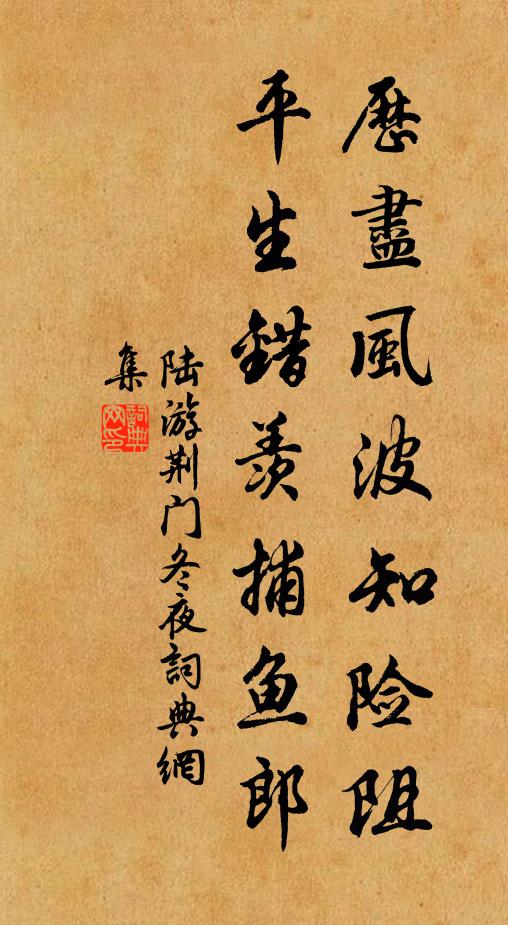 歷盡風波知险阻
平生錯羨捕鱼郎
陆游荆门冬夜詞典網
集
詞典
网印